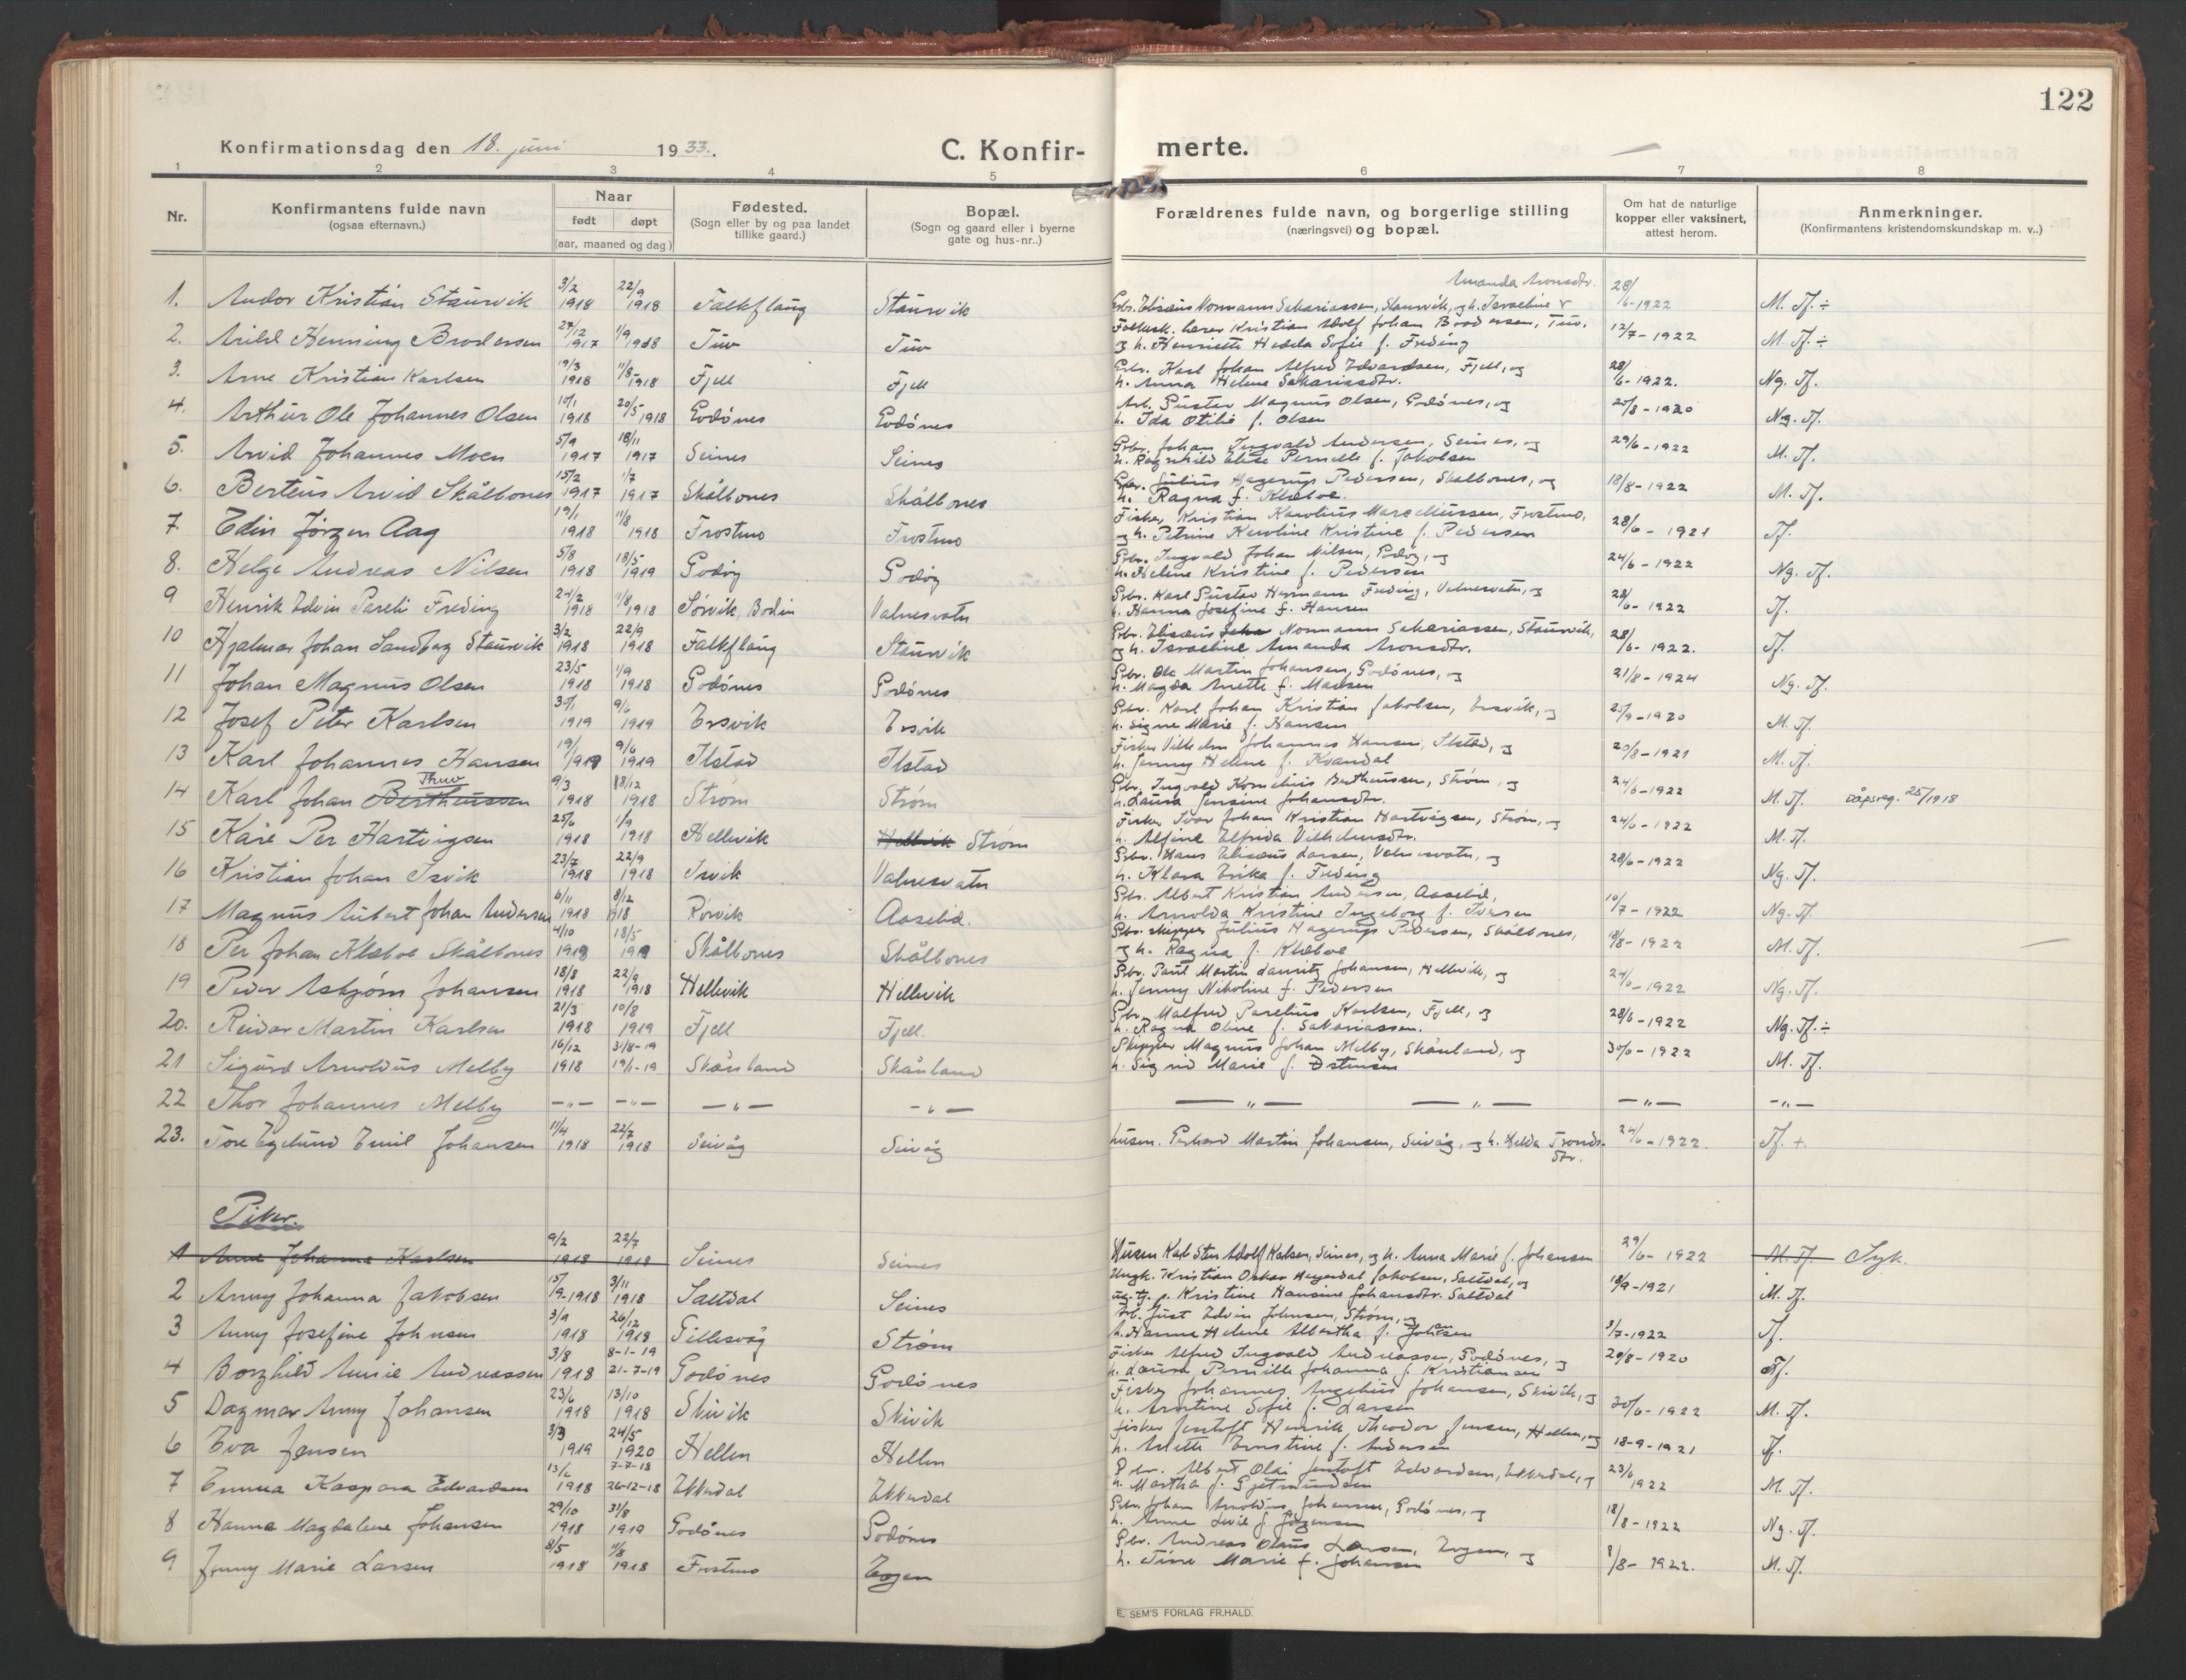 122
Konfirmationsdag den 18. juni 1933. C. Konfir- merte.
1 2 3 4 5 6 7 8
Nr. Konfirmantens fulde navn (ogsaa efternavn.) Naar født døpt (aar, maaned og dag.) Fødested. (Sogn eller by og paa landet tillike gaard.) Bopæl. (Sogn og gaard eller i byerne gate og hus-nr..) Forældrenes fulde navn, og borgerlige stilling (næringsvei) og bopæl. Om hat de naturlige kopper eller vaksinert, attest herom. Anmerkninger. (Konfirmantens kristendomskundskap m. v..)
Amanda Aronsdtr.
1. Andor Kristian Staurvik 3/2 1918 22/9 1918 Falkflaug Staurvik Gbr. Elisæus Normann Sakariassen, Staurvik, og h. Israeline 28/6-1922 M. Tf. ÷
2. Arild Henning Brodersen 27/12 1917 1/9 1918 Tuv Tuv Folkesk. lærer Kristian Adolf Johan Brodersen, Tuv, og h. Henriette Hedda Sofie f. Freding 12/7-1922 M. Tf. ÷
3. Arne Kristian Karlsen 19/3 1918 11/8-1918 Fjell Fjell Gbr. Karl Johan Alfred Edvardsen, Fjell, og h. Anna Helene Sakariasdtr. 28/6-1922. Ng. Tf.
4. Arthur Ole Johannes Olsen 10/1 1918 20/5 1918 Godönes Godönes Arb. Gustav Magnus Olsen, Godönes, og h. Ida Otilie f. Olsen 20/8-1920 Ng. Tf.
5. Arvid Johannes Moen 5/9 1917 18/11 1917 Seines Seines Gbr. Johan Ingvald Andersen, Seines, og h. Ragnhild Elise Pernille f. Jakobsen 29/6-1922 M. Tf.
6. Berteus Arvid Skålbones 15/2 1917 1/7 1917 Skålbones Skålbones Gbr. Julius Hagerup Pedersen, Skålbones, og h. Ragna f. Klæboe. 18/8-1922 M. Tf.
7. Edin Jörgen Aag 19/1 1918 11/8 1918 Frostmo Frostmo Fisker, Kristian Karolius Marcelliussen, Frostmo, og h. Petrine Karoline Kristine f. Pedersen 28/6-1921 Tf.
8. Helge Andreas Nilsen 5/8 1918 18/5 1919 Godöy Godöy Gbr. Ingvald Johan Nilsen, Godöy, og h. Helene Kristine f. Pedersen 24/6-1922 Ng. Tf.
9 Henrik Edvin Pareli Freding 24/2 1918 11/8 1918 Sörvik, Bodin Valnesvatn Gbr. Karl Gustav Hermann Freding, Valnesvatn, og h. Hanna Josefine f. Hansen 28/6-1922 Tf.
10 Hjalmar Johan Sandberg Staurvik 3/2 1918 22/9 1918 Falkflaug Staurvik Gbr. Elisæus Normann Sakariassen, Staurvik, og h. Israeline Amanda Aronsdtr. 28/6-1922. Tf.
11 Johan Magnus Olsen 23/5 1918 1/9 1918 Godönes Godönes Gbr. Ole Martin Johansen, Godönes, og h. Magda Anette f. Madsen 21/8-1924 Ng. Tf.
12 Josef Peter Karlsen 30/1 1919 9/6 1919 Ersvik Ersvik Gbr. Karl Johan Kristian Jakobsen, Ersvik, og h. Signe Marie f. Hansen 25/9-1920 M. Tf.
13 Karl Johannes Hansen 19/1 1919 9/6 1919 Ilstad Ilstad Fisker Vilhelm Johannes Hansen, Ilstad, og h. Jenny Helene f. Kvandal 20/8-1921 M. Tf.
14 Karl Johan Bertheussen Thuv 9/3 1918 18/12 1918 Ström Ström Gbr. Ingvald Kornelius Bertheussen, Ström, og h. Laura Jensine Johansdtr. 24/6-1922 M. Tf. Dåpsreg. 25/1918
15 Kåre Per Hartvigsen 25/6 1918 1/9 1918 Hellevik Hellevik Ström Fisker Ivar Johan Kristian Hartvigsen, Ström, og h. Alfine Elfrida Vilhelmsdtr. 24/6-1922 M. Tf.
16 Kristian Johan Isvik 23/7 1918 22/9 1918 Isvik Valnesvatn Gbr. Hans Elisæus Larsen, Valnesvatn, og h. Klara Erika f. Freding 28/6-1922 Ng. Tf.
17 Magnus Aubert Johan Andersen 6/11 1918 8/12 1918 Rörvik Aaselid. Gbr. Albert Kristian Andersen, Aaselid, h. Arnolda Kristine Ingeborg f. Iversen 10/7-1922 Ng. Tf.
18 Per Johan Klæboe Skålbones 4/10 1918 18/5 1919 Skålbones Skålbones Gbr. skipper Julius Hagerup Pedersen, Skålbones, og h. Ragna f. Klæboe 18/8-1922 M. Tf.
19 Peder Asbjörn Johansen 18/8 1918 22/9 1918 Hellevik Hellevik Gbr. Paul Martin Lauritz Johansen, Hellevik, og h. Jenny Nikoline f. Pedersen 24/6-1922 Ng. Tf.
20. Reidar Martin Karlsen 21/3 1918 10/8 1919 Fjell Fjell. Gbr. Malfred Parelius Karlsen, Fjell, og h. Ragna Oline f. Sakariassen. 28/6-1922 Ng. Tf. ÷
21 Sigurd Arnoldus Melby 16/12 1918 31/8-19 19/1-19 Skånland Skånland Skipper Magnus Johan Melby, Skånland, og h. Sigrid Marie f. Östensen 30/6-1922 M. Tf.
22 Thor Johannes Melby —"— —"— —"— —"— —"— —"— —"— —"—
23. Tore Egelund Emil Johansen 11/4 1918 22/7 1918 Seivåg Seivåg Husm. Gerhard Martin Johansen, Seivåg, og h. Hilda Tronds-dtr. 24/6-1922. Tf. +
Piker.
1 Anna Johanna Karlsen 9/2 1918 22/7 1918 Seines Seines Husm Karl Sten Adolf Kalsen, Seines, og h. Anna Marie f. Johansen 29/6-1922 M. Tf. Syk.
2 Anny Johanna Jakobsen 15/9-1918 3/11 1918 Saltdal Seines Ungk. Kristian Oskar Hegerdal Jakobsen, Saltdal, og p. Kristine Hansine Johansdtr. Saltdal 18/9-1921 M. Tf.
3 Anny Josefine Johnsen 3/9 1918 26/12 1918 Gillesvåg Ström Arb. Just Edvin Johnsen, Ström, og h. Hanna Helene Albertha f. Johansen 3/7-1922 Tf.
4 Borghild Annie Andreassen 3/8 1918 8-1-19 21-7-19 Godönes Godönes Fisker Alfred Ingvald Andreassen, Godönes, og h. Laura Pernille Johanna f. Kristiansen 20/8-1920 Tf.
5 Dagmar Anny Johansen 23/6 1918 13/10 1918 Skivik Skivik Fisker Johannes Angelius Johansen, Skivik, og h. Arntine Sofie f. Larsen 30/6-1922 M. Tf.
6 Eva Jensen 3/3 1919 24/5 1920 Hellen Hellen Fisker Jentoft Henrik Theodor Jensen, Hellen, og h. Anette Ernstine f. Andersen 18-9-1921 Tf.
7 Emma Kaspara Edvardsen 13/6 1918 7-7-18 26-12-18 Ekkerdal Ekkerdal Gbr. Albert Olai Jentoft Edvardsen, Ekkerdal, og h. Martha f. Gjetmundsen 23/6 1922 M. Tf.
8 Hanna Magdalene Johansen 29/10 1918 31/8 1919 Godönes Godönes Gbr. Johan Arnoldus Johansen, Godönes, og h. Anne f. Jörgensen 18/8-1922 Ng. Tf.
9 Jenny Marie Larsen 8/5 1918 11/8 1918 Frostmo Engen Gbr. Andreas Olaus Larsen, Engen, og h. Tine Marie f. Johansen 8/8-1922. M. Tf.
E. SEM'S FORLAG FR.HALD.